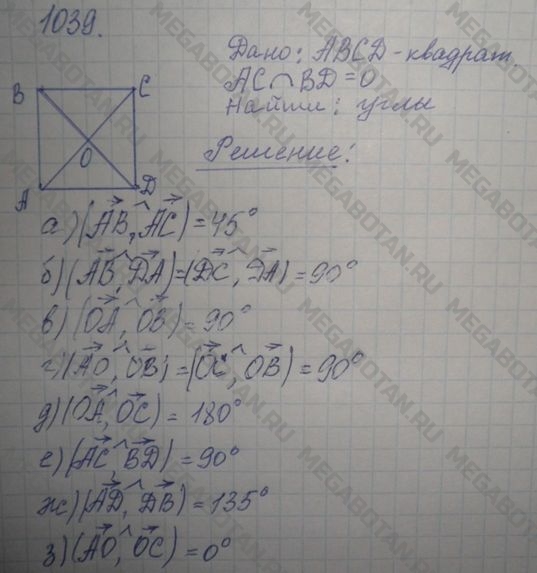 1039.
Дано: ABCD - квадрат.
AC ∩ BD = O
Найти: углы
Решение:
B C
O
A D
а) (AB, ^ AC) = 45°
б) (AB, ^ DA) = (DC, ^ DA) = 90°
в) (OA, ^ OB) = 90°
г) (AO, ^ OB) = (OC, ^ OB) = 90°
д) (OA, ^ OC) = 180°
е) (AC, ^ BD) = 90°
ж) (AD, ^ DB) = 135°
з) (AO, ^ OC) = 0°
MEGABOTAN.RU